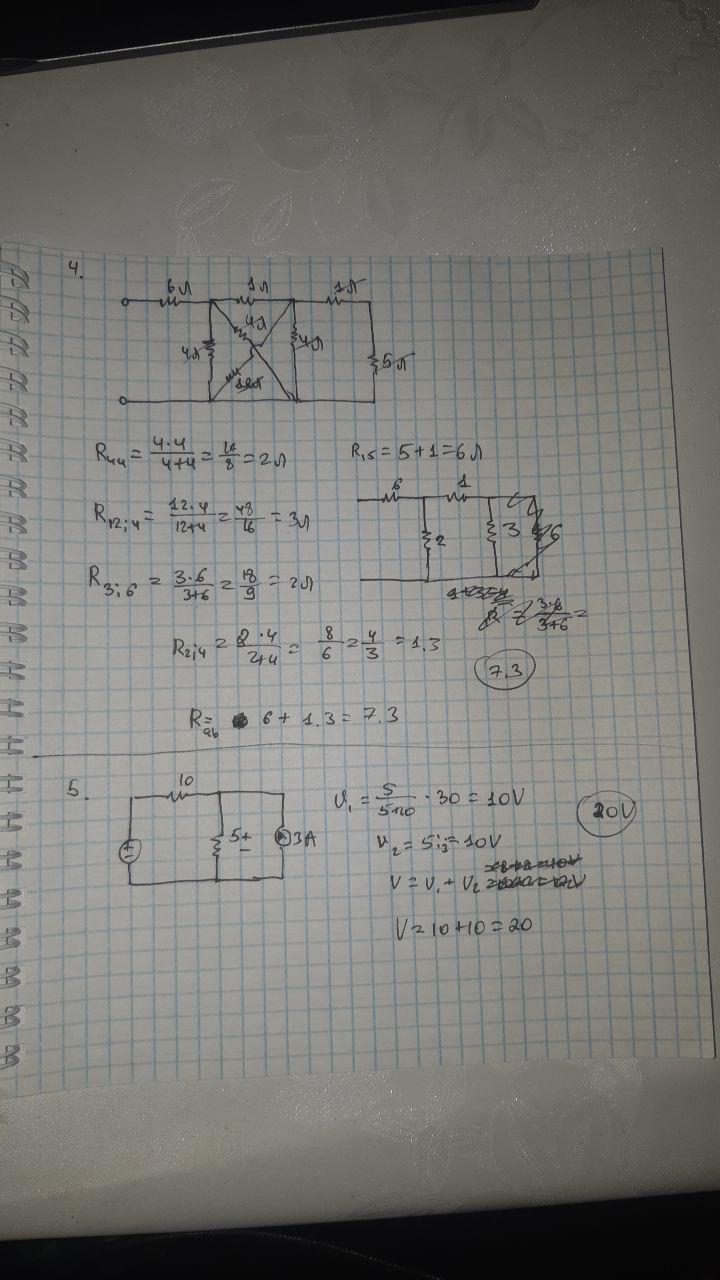 4.
6Л 1Л 1Л
4Л 4Л 12Л 4Л 5Л
R₄₄ = 4·4/4+4 = 16/8 = 2Л R₁,₅ = 5+1 = 6Л
R₁₂;₄ = 12·4/12+4 = 48/16 = 3Л
6 1
2 3 6
R₃;₆ = 3·6/3+6 = 18/9 = 2Л
3·6/3+6 =
R₂;₄ = 2·4/2+4 = 8/6 = 4/3 = 1.3
7.3
R_ab = 6 + 1.3 = 7.3
5.
10
5 + - 3A
+ -
V₁ = 5/5+10 · 30 = 10V
20V
V₂ = 5i₃ = 10V
V = V₁ + V₂
V = 10 + 10 = 20